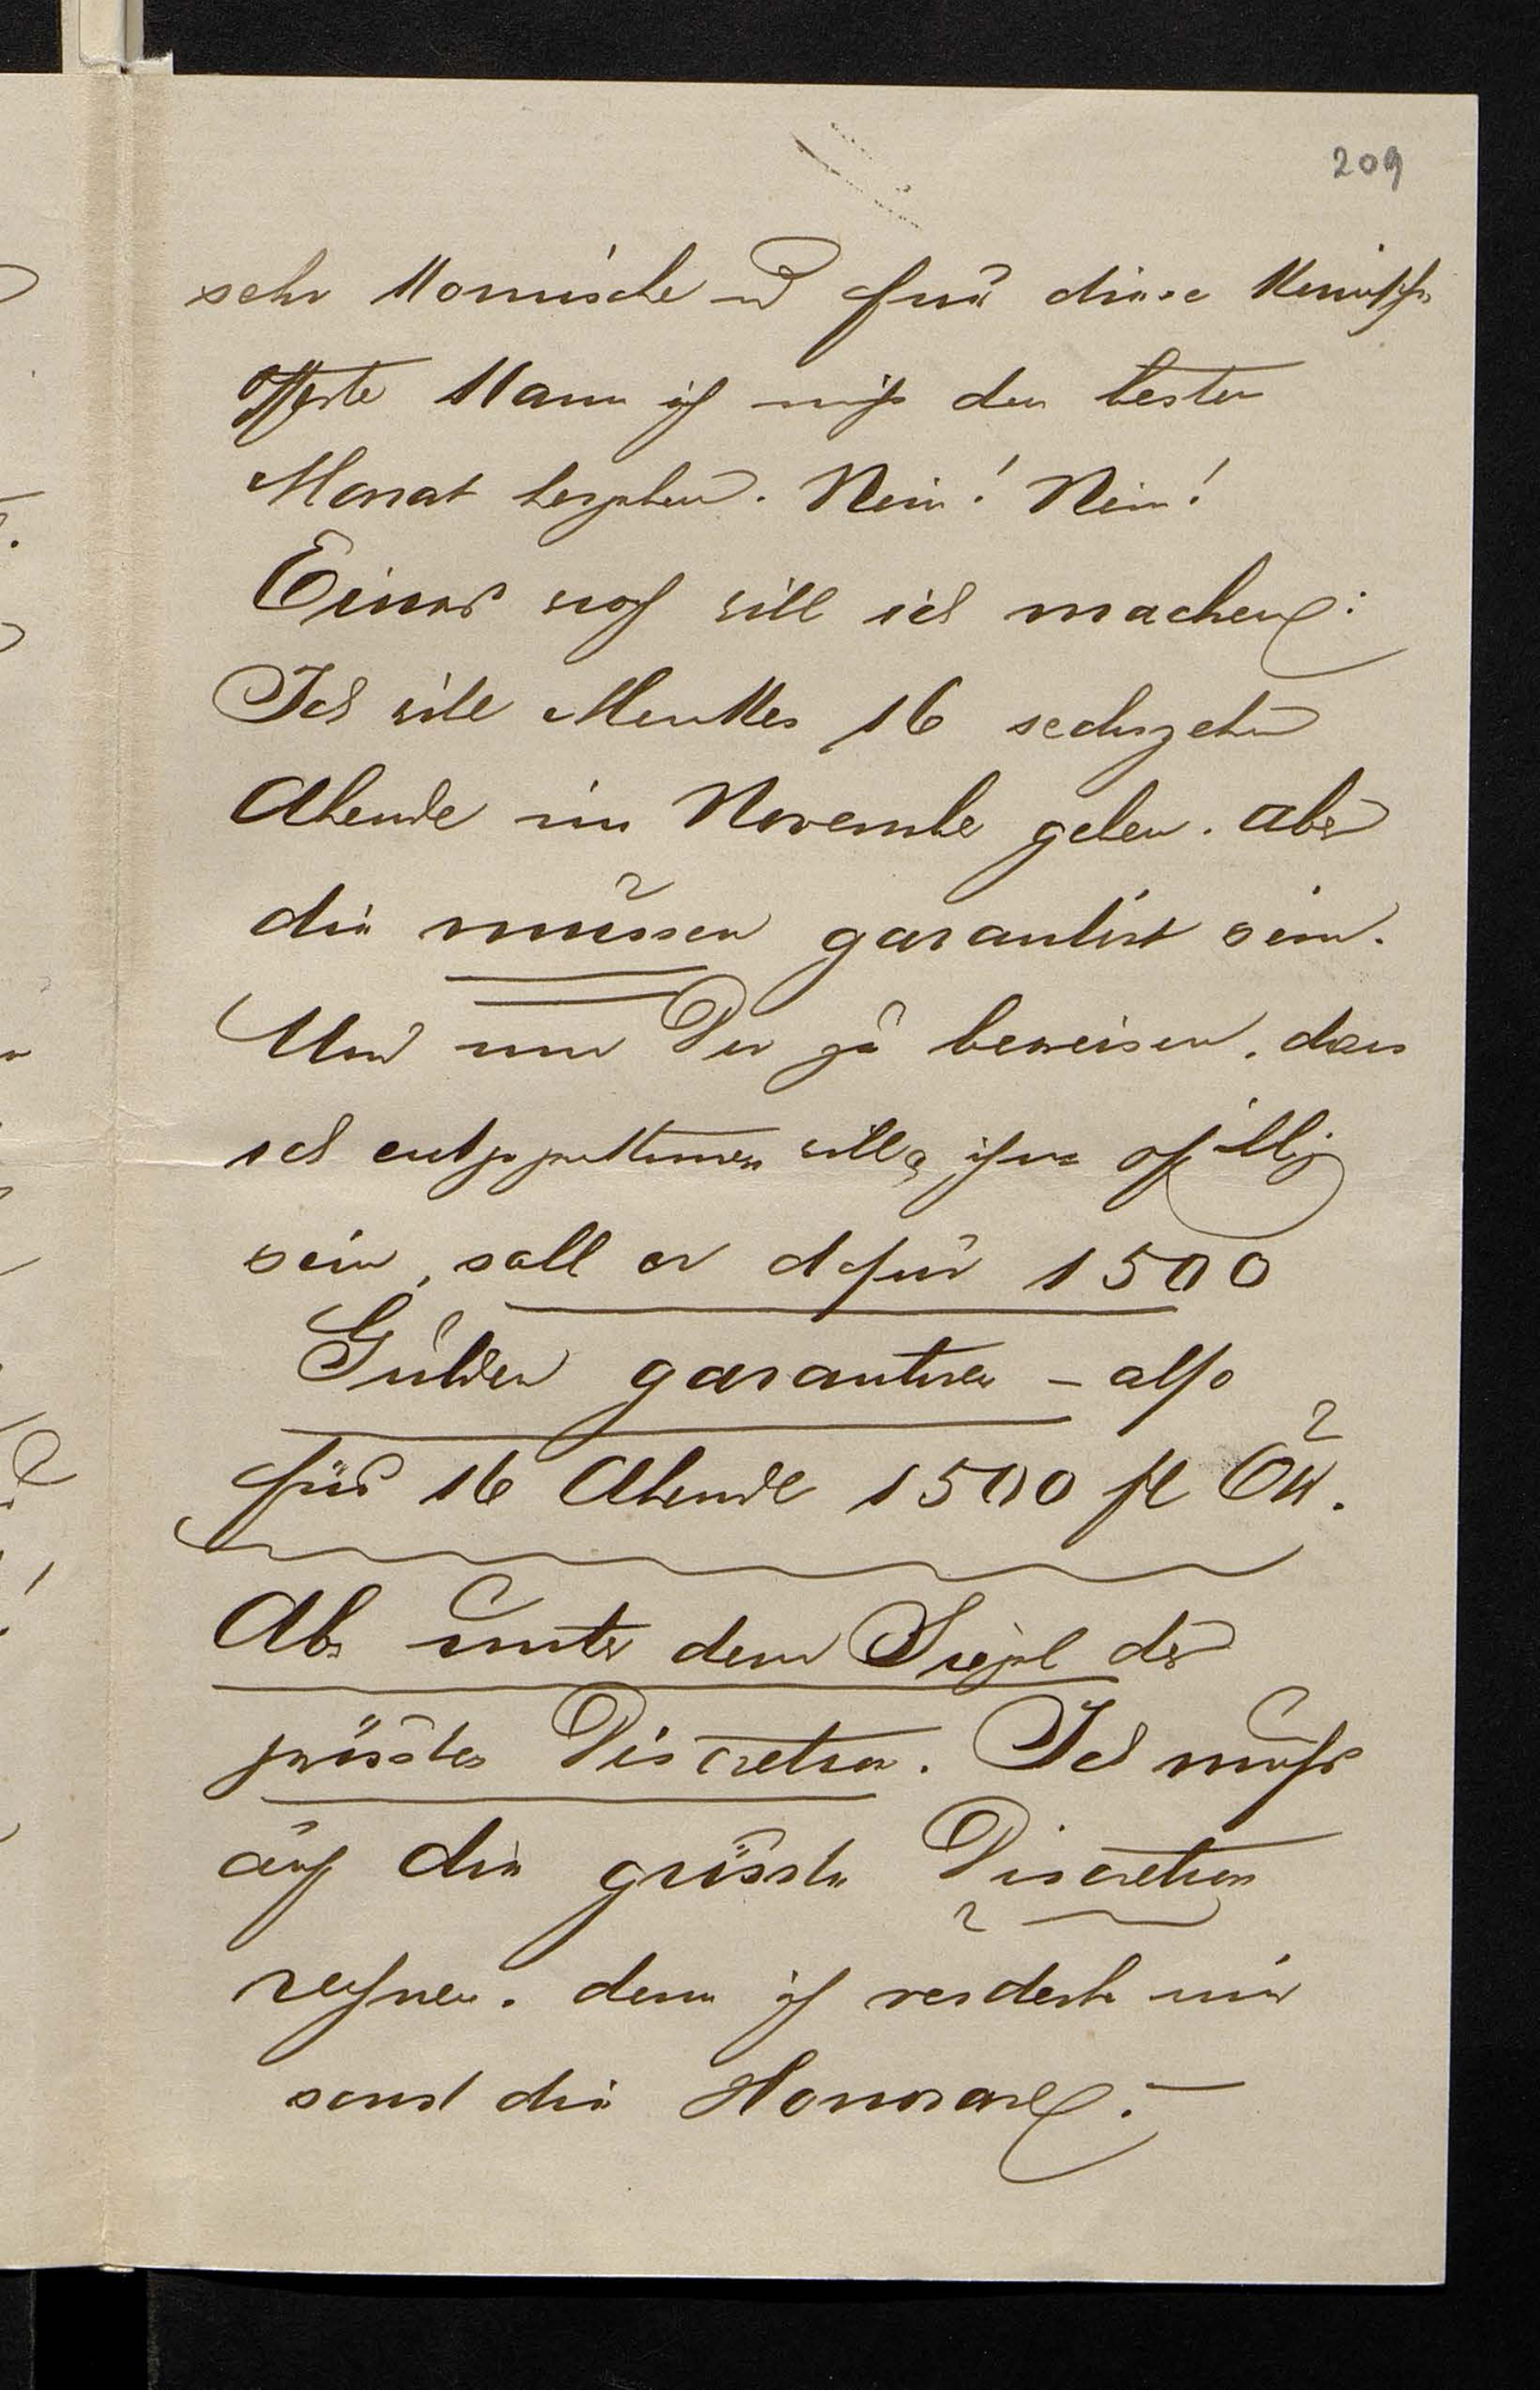 209
sehr komische und für diese komische
Offerte kann ich nicht den besten
Monat hergeben. Nein! Nein!
Eines noch will ich machen:
Ich will Merkles 16 sechzehn
Abende im November geben. aber
die müssen garantirt sein.
Und um Dir zu beweisen, dass
ich entgegenkommen will, ihm gefällig
sein, soll er dafür 1500
Gulden garantiren – also
für 16 Abende 1500 fl ÖW.
Aber unter dem Siegel der
grössten Discretion. Ich muß
auf die grösste Discretion
rechnen. denn ich verderbe mir
sonst die Honorare. –